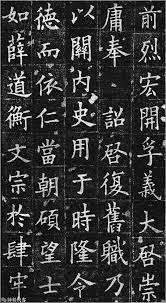 前烈宏開孚義大啓崇
庸奉 詔啓復舊職乃
以關内史用於時隆令
德而依仁當朝碩望士
如薛道衡文宗於肆牢